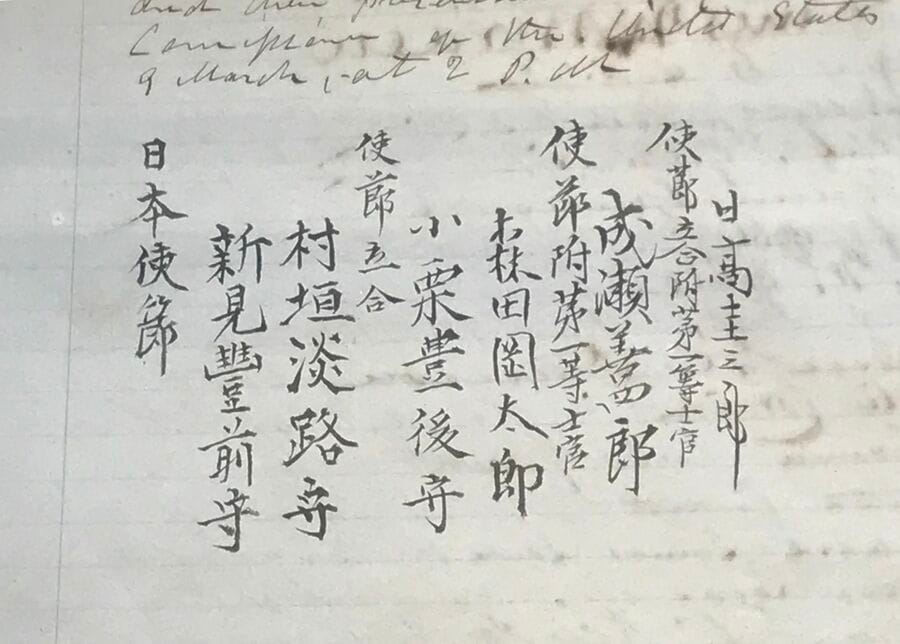 and their
of the United States
9 March, at 2 P. M
日本使節
新見豐前守
村垣淡路守
使節立合
小栗豊後守
森田岡太郎
使節附第一等士官
成瀬善四郎
使節立合附第一等士官
日高圭三郎